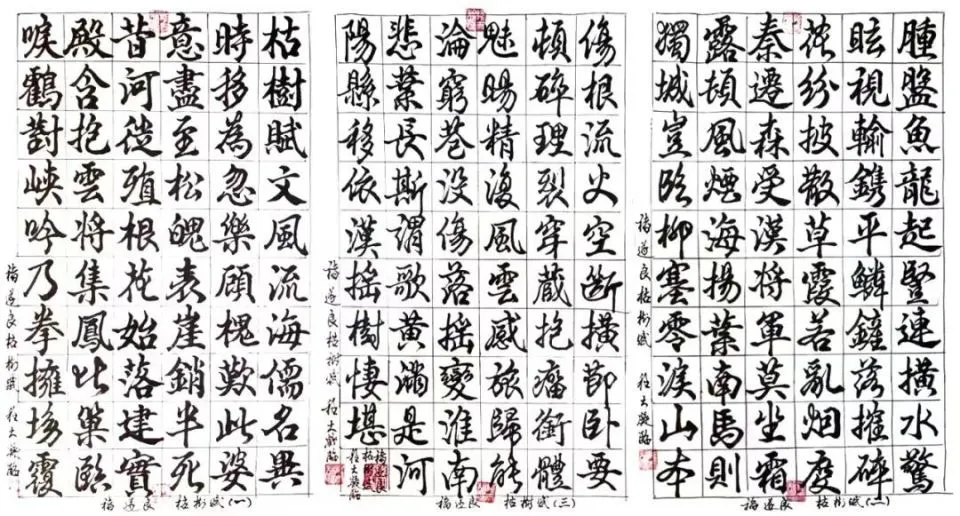 枯樹賦文風流海儒名異
時移為忽樂顧槐歎此婆
意盡至松魄表崖銷半死
昔河從殖根花始落建實
殿含抱雲將集鳳比巢臨
唳鶴對峽吟乃拳擁場覆
褚遂良枯樹賦
褚遂良 枯樹賦(一)
傷根流火空斷橫節卧要
頓碎理裂穿藏抱癰銜體
魅睗精復風雲感旅歸能
淪窮巷沒傷落搖變淮南
悲葉長斯謂歌黃溺是河
陽縣移依漢搖樹悽堪
褚遂良枯樹賦
褚遂良 枯樹賦(三)
腫盤魚龍起豎連橫水驚
眩視輪鐫平鱗鏟落摧碎
秾紛披散草霞若亂烟度
秦遷森受漢將軍莫坐霜
露頓風煙海揚葉南馬則
獨城豈臨柳塞零淚山本
褚遂良枯樹賦
褚遂良 枯樹賦(二)